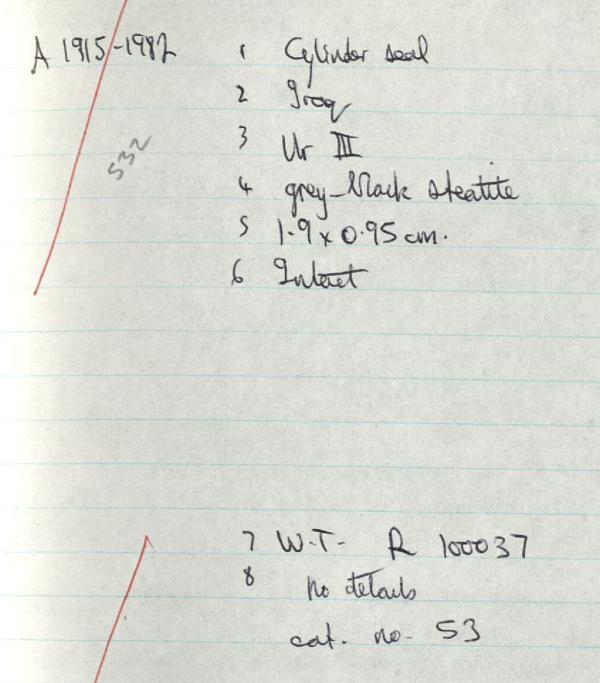 A 1915-1982 1 Cylinder seal
2 Iraq
532
3 Ur III
4 grey-black steatite
5 1.9 x 0.95 cm.
6 Intact
7 W.T- R 100037
8 no details
cat. no- 53